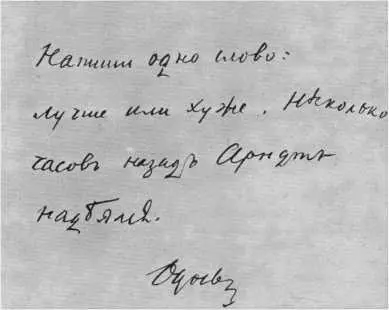 Напиши одно слово:
лучше или хуже. Нѣсколько
часовъ назадъ Арндтъ
надѣялся.
Одоевс